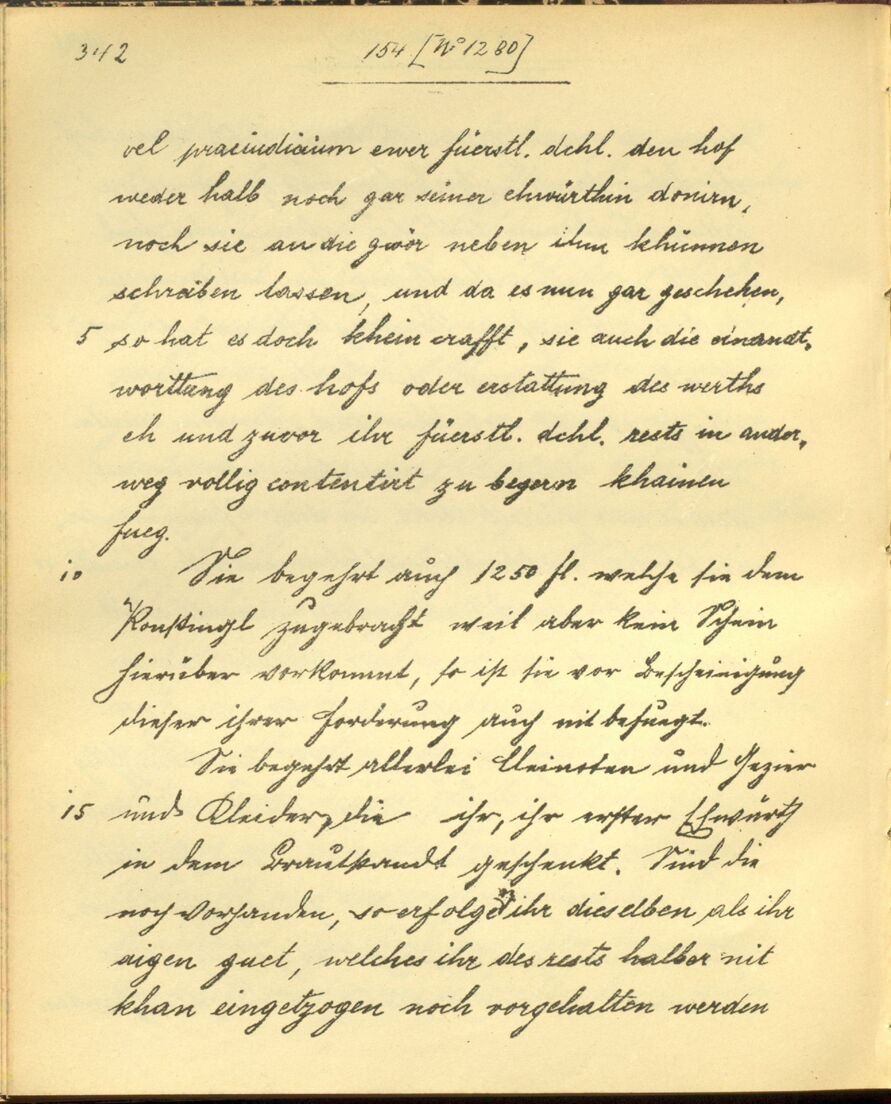 342
154 [No 1280]
vel praeiudicium ewer füerstl. dchl. den hof
weder halb noch gar seiner ehwürthin donirn,
noch sie an die gwör neben ihm khünnen
schreiben lassen, und da es nun gar geschehen,
5 so hat es doch khein crafft, sie auch die einandt-
worttung des hofs oder erstattung des werths
eh und zuvor ihr füerstl. dchl. rests in ander-
weg vollig contentirt zu begern khainen
fueg.
10 Sie begehrt auch 1250 fl. welche sie dem
zugebracht weil aber kein Schein
hierüber vorkommt, so ist sie vor Bescheinigung
dieser ihrer Forderung auch nit befuegt.
Sie begehrt allerlei Cleinoten und Gezier
15 und Kleider, die ihr, ihr erster Ehwürth
in dem Brautstandt geschenkt. Sind die
noch vorhanden, so erfolge ihr dieselben als ihr
aigen guet, welches ihr des rests halber nit
khan eingetzogen noch vorgehalten werden